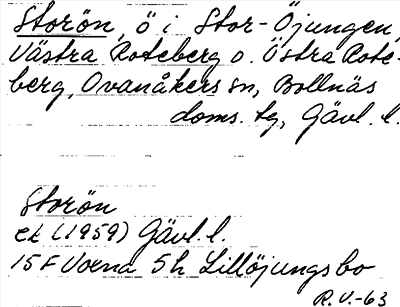 Storön, ö i Stor-Öjungen,
Västra Roteberg o. Östra Rote-
berg, Ovanåkers sn, Bollnäs
doms. tg, Gävl. l.
Storön
ek (1959) Gävl. l.
15 F Voxna 5h Lillöjungsbo
R.V.-63